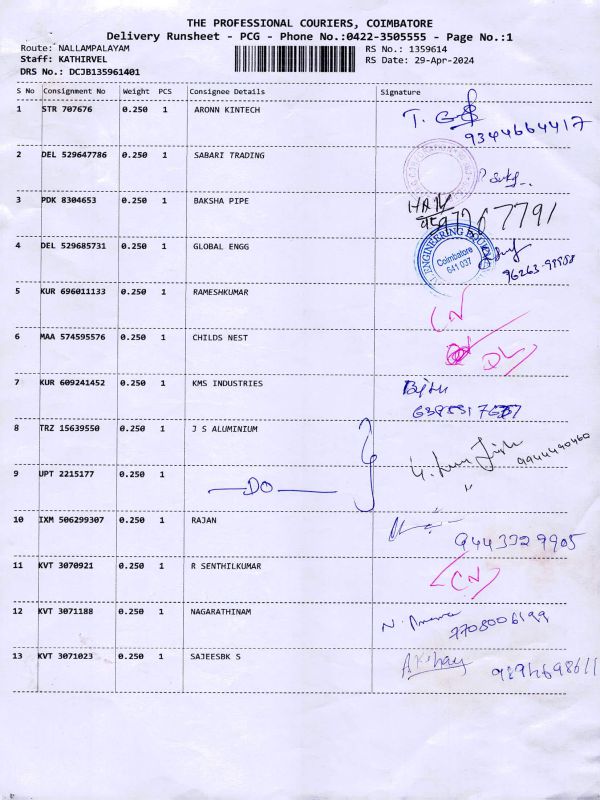 THE PROFESSIONAL COURIERS, COIMBATORE
Delivery Runsheet - PCG - Phone No.:0422-3505555 - Page No.:1
Route: NALLAMPALAYAM RS No.: 1359614
Staff: KATHIRVEL RS Date: 29-Apr-2024
DRS No.: DCJB135961401
S No Consignment No Weight PCS Consignee Details Signature
1 STR 707676 0.250 1 ARONN KINTECH
9344664417
2 DEL 529647786 0.250 1 SABARI TRADING
3 PDK 8304653 0.250 1 BAKSHA PIPE
7791
4 DEL 529685731 0.250 1 GLOBAL ENGG
ENGINEERING
Coimbatore
641 037
5 KUR 696011133 0.250 1 RAMESHKUMAR
CN
6 MAA 574595576 0.250 1 CHILDS NEST
DL
7 KUR 609241452 0.250 1 KMS INDUSTRIES
8 TRZ 15639550 0.250 1 J S ALUMINIUM
9944490460
9 UPT 2215177 0.250 1 DO "
10 IXM 506299307 0.250 1 RAJAN
9443329905
11 KVT 3070921 0.250 1 R SENTHILKUMAR
(CN)
12 KVT 3071188 0.250 1 NAGARATHINAM
7708006199
13 KVT 3071023 0.250 1 SAJEESBK S
Akshay 9894698611